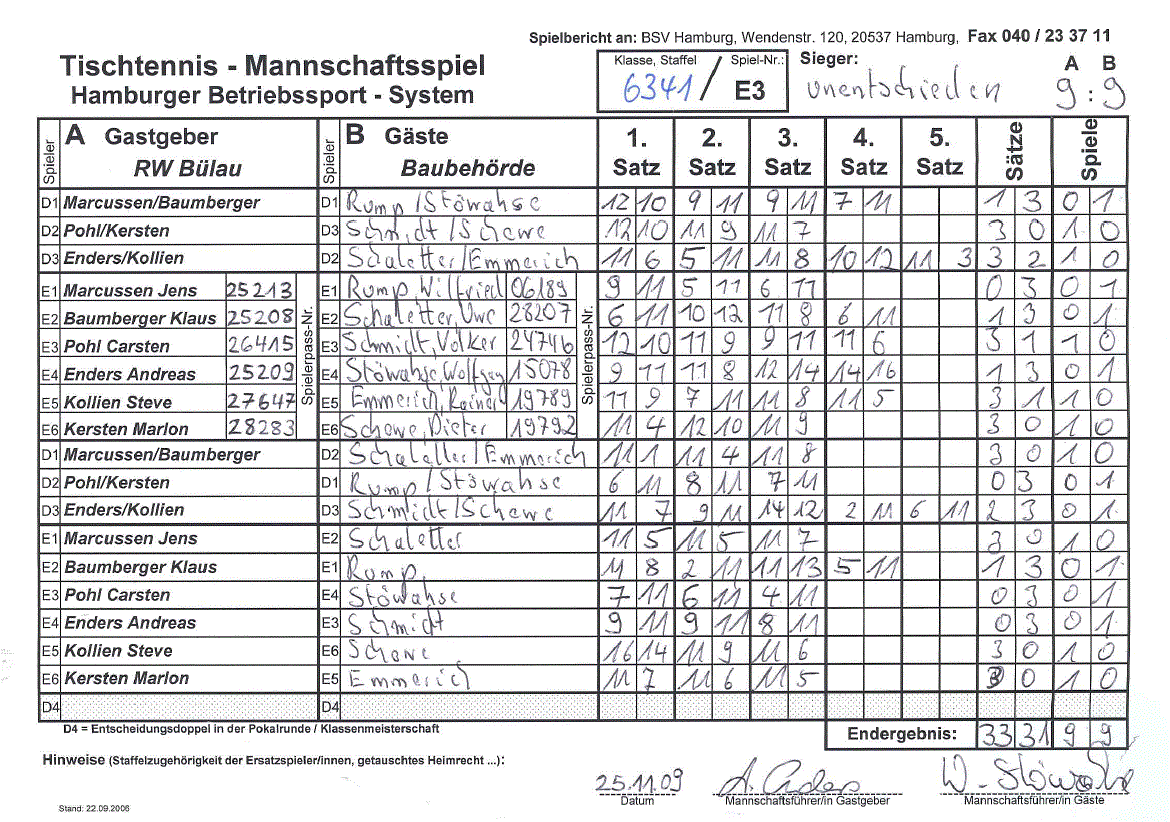 Spielbericht an: BSV Hamburg, Wendenstr. 120, 20537 Hamburg, Fax 040 / 23 37 11
Tischtennis - Mannschaftsspiel
Hamburger Betriebssport - System
Klasse, Staffel 6341 / Spiel-Nr.: E3
Sieger: unentschieden
A B
9 : 9
Spieler A Gastgeber RW Bülau Spieler B Gäste Baubehörde 1. Satz 2. Satz 3. Satz 4. Satz 5. Satz Sätze Spiele
D1 Marcussen/Baumberger D1 Rump/Stöwahse 12 10 9 11 9 11 7 11 1 3 0 1
D2 Pohl/Kersten D3 Schmidt/Schewe 12 10 11 9 11 7 3 0 1 0
D3 Enders/Kollien D2 Schaletter/Emmerich 11 6 5 11 11 8 10 12 11 3 3 2 1 0
Spielerpass-Nr. Spielerpass-Nr.
E1 Marcussen Jens 25213 E1 Rump, Wilfried 06189 9 11 5 11 6 11 0 3 0 1
E2 Baumberger Klaus 25208 E2 Schaletter, Uwe 28207 6 11 10 12 11 8 6 11 1 3 0 1
E3 Pohl Carsten 26415 E3 Schmidt, Volker 24746 12 10 11 9 9 11 11 6 3 1 1 0
E4 Enders Andreas 25209 E4 Stöwahse, Wolfgang 15078 9 11 11 8 12 14 14 16 1 3 0 1
E5 Kollien Steve 27647 E5 Emmerich, Rainer 19789 11 9 7 11 11 8 11 5 3 1 1 0
E6 Kersten Marlon 28283 E6 Schewe, Dieter 19792 11 4 12 10 11 9 3 0 1 0
D1 Marcussen/Baumberger D2 Schaletter/Emmerich 11 1 11 4 11 8 3 0 1 0
D2 Pohl/Kersten D1 Rump/Stöwahse 6 11 8 11 7 11 0 3 0 1
D3 Enders/Kollien D3 Schmidt/Schewe 11 7 9 11 14 12 2 11 6 11 2 3 0 1
E1 Marcussen Jens E2 Schaletter 11 5 11 5 11 7 3 0 1 0
E2 Baumberger Klaus E1 Rump 11 8 2 11 11 13 5 11 1 3 0 1
E3 Pohl Carsten E4 Stöwahse 7 11 6 11 4 11 0 3 0 1
E4 Enders Andreas E3 Schmidt 9 11 9 11 8 11 0 3 0 1
E5 Kollien Steve E6 Schewe 16 14 11 9 11 6 3 0 1 0
E6 Kersten Marlon E5 Emmerich 11 7 11 6 11 5 3 0 1 0
D4 D4
D4 = Entscheidungsdoppel in der Pokalrunde / Klassenmeisterschaft
Endergebnis: 33 31 9 9
Hinweise (Staffelzugehörigkeit der Ersatzspieler/innen, getauschtes Heimrecht ...):
25.11.09 A. Enders W. Stöwahse
Datum Mannschaftsführer/in Gastgeber Mannschaftsführer/in Gäste
Stand: 22.09.2006